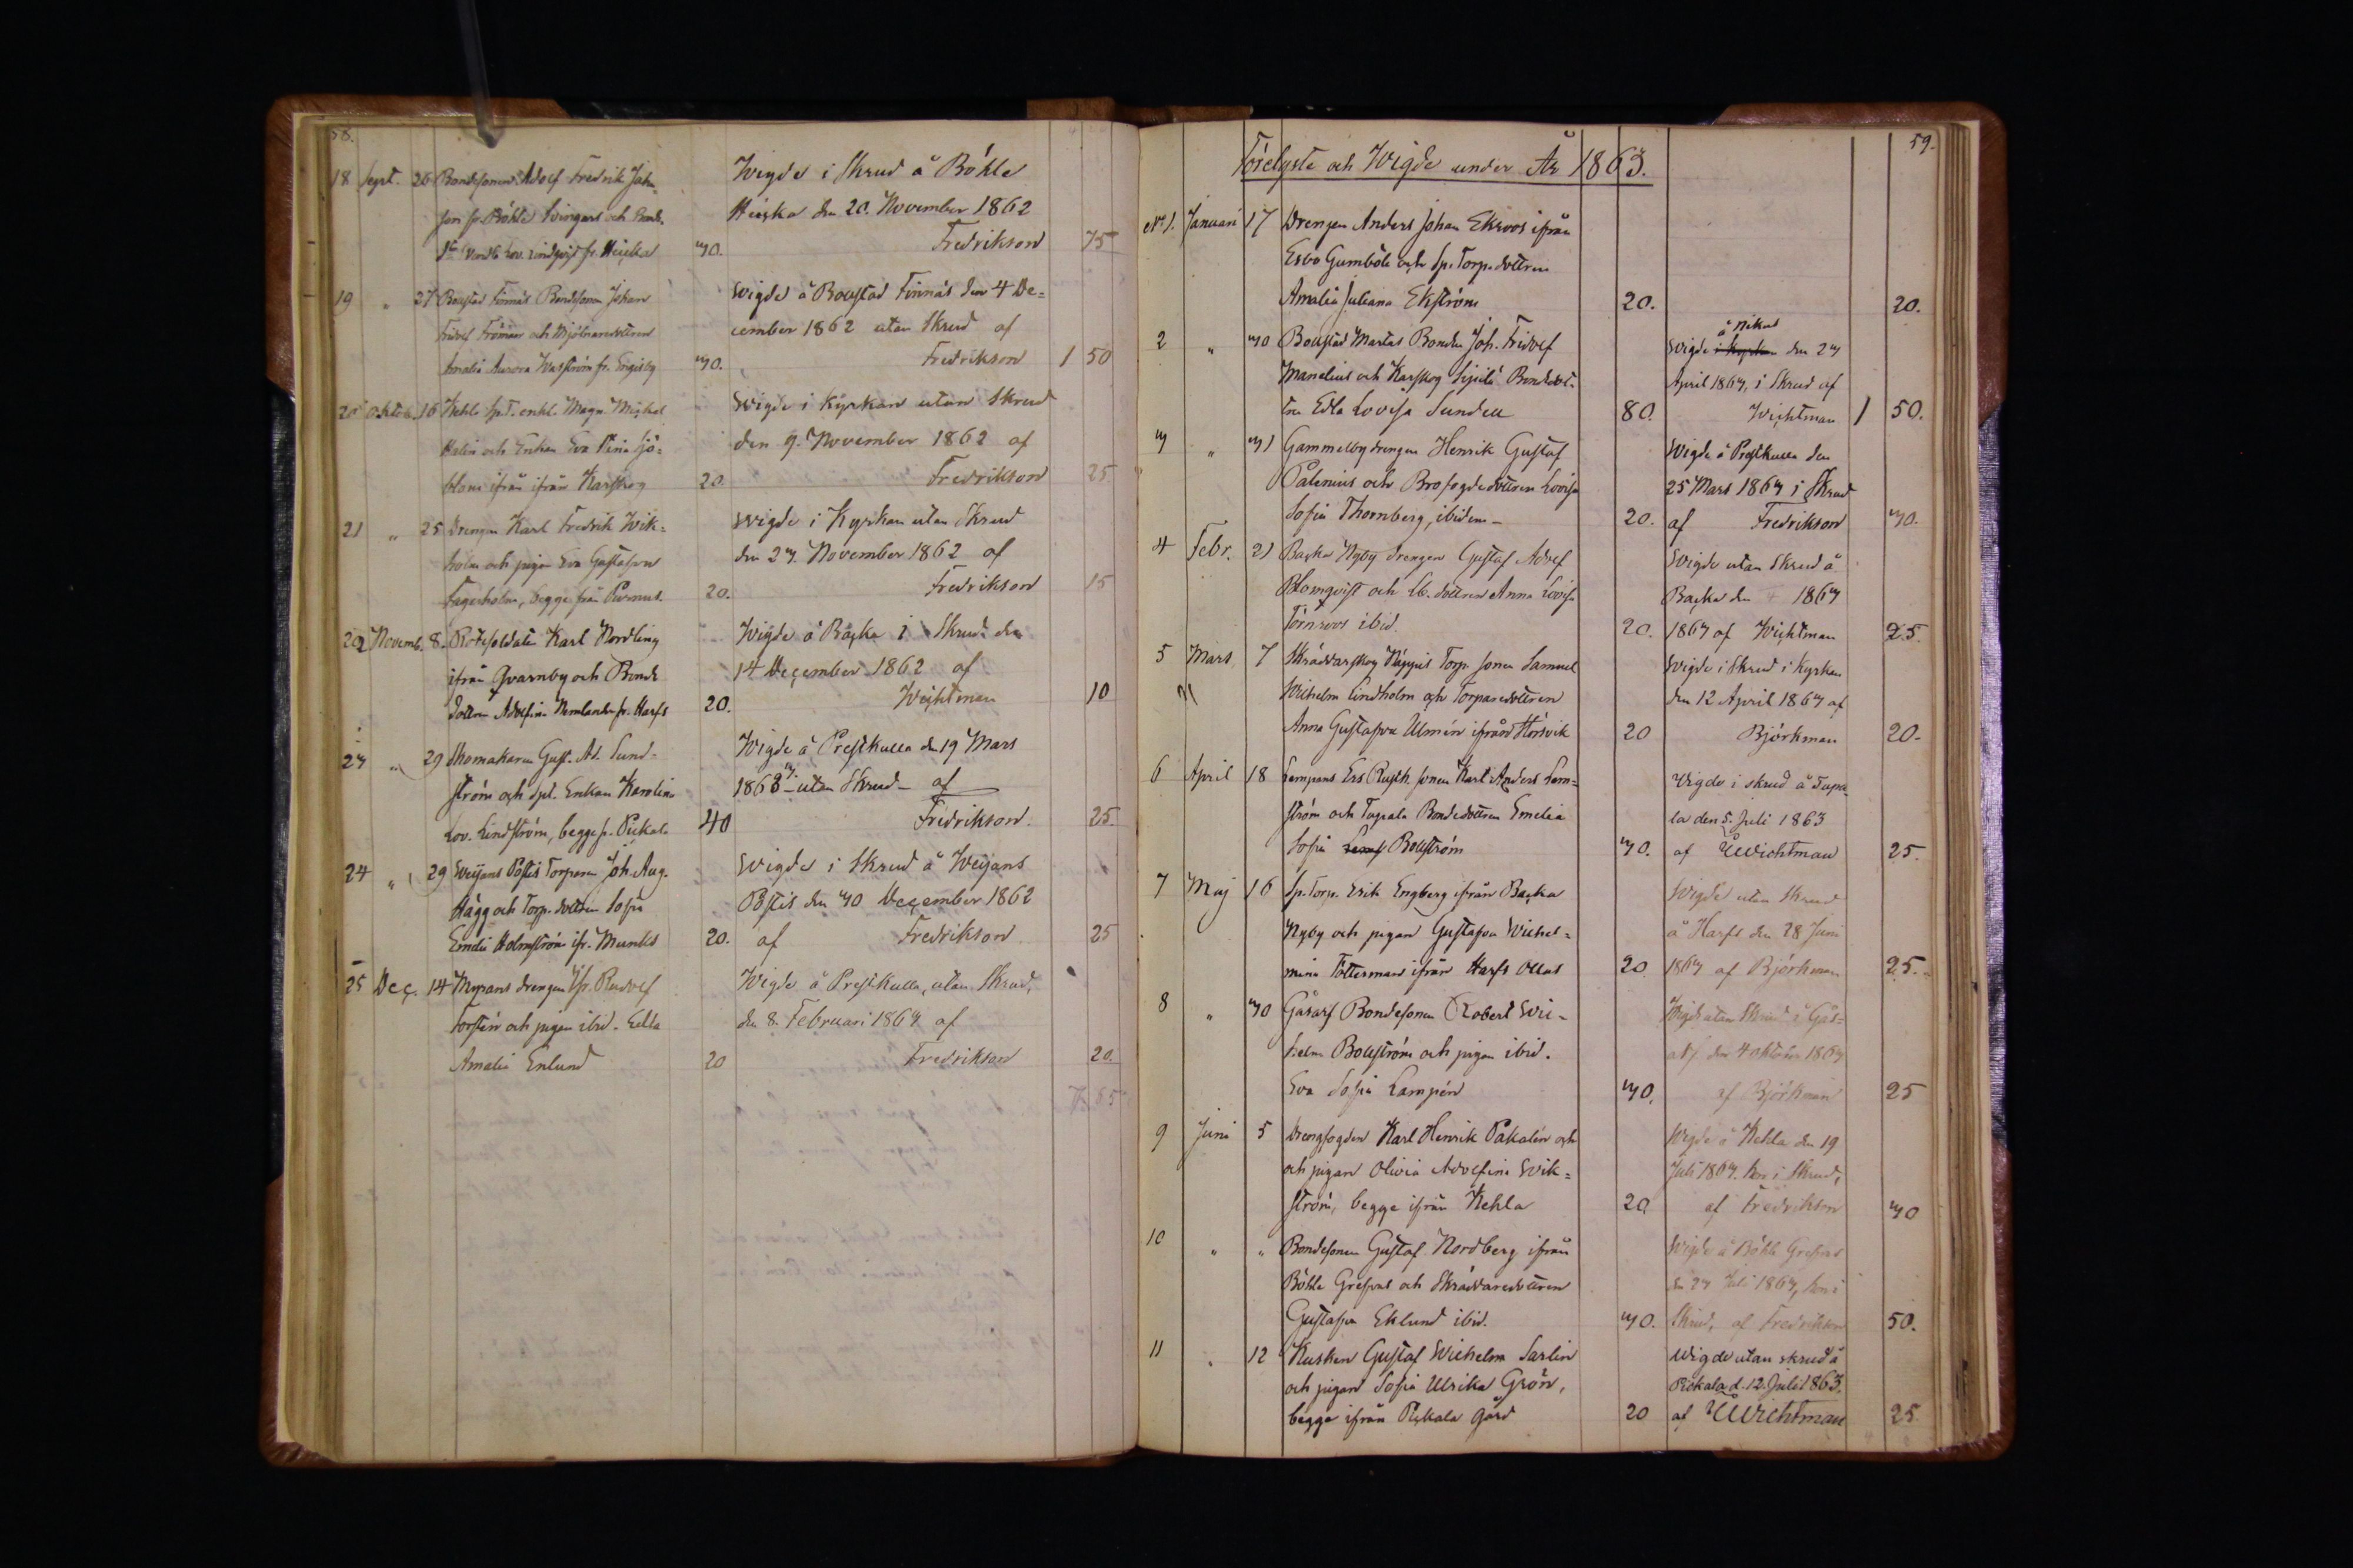 58.
18 Sept. 26 Bondesonen Adolf Fredrik Johan
son fr. Böhle Svingars och Bond.
Lov. Lindqvist fr. Heicka 30.
Wigde i Skrud å Böhle
Heicka den 20. November 1862
Fredrikson 75
19 " 27 Bollstad Finnäs Bondsonen Johan
Fridolf Fröman och Mjölnaredottren
Amalia Aurora Wasström fr. Ingisby 30.
Wigde å Bollstad Finnäs den 4 De=
cember 1862 utan Skrud af
Fredrikson 1 50
20 Oktob. 16 Kehla Sp.T. enkl. Magn. Mickel
Malin och Enkan Eva Stina Sjö=
blom ifrån ifrån Karskog 20
Wigde i Kyrkan utan Skrud
den 9. November 1862 af
Fredrikson 25
21 " 25 Drengen Karl Fredrik Wik=
holm och pigan Eva Gustafva
Fagerholm, begge från Purnus. 20.
Wigde i Kyrkan utan Skrud
den 23. November 1862 af
Fredrikson 15
22 Novemb. 8. Rotesoldaten Karl Nordling
ifrån Qvarnby och Bonde
dottren Adolfina Nemlander fr. Harfs 20.
Wigde å Backa i Skrud den
14 December 1862 af
Wichtman 10
23 " 29 Skomakaren Gust. Ad. Sund-
ström och Spl. Enkan Karolina
Lov. Lindström, begge fr. Pickala 40
Wigde å Prestkulla den 19 Mars
1863 utan Skrud af
Fredrikson. 25.
24 " 29 Weijans Postis Torparen Joh. Aug.
Hägg och Torp. dottren Sofia
Emelie Holmström ifr. Munks 20.
Wigde i Skrud å Weijans
Postis den 30 December 1862
af Fredrikson 25
25 Dec. 14 Myrans drengen Fr. Rudolf
Forstén och pigan ibid. Edla
Amalia Enlund 20
Wigde å Prestkulla, utan Skrud,
den 8. Februari 1863 af
Fredrikson 20.
65
59.
Förelyste och Wigde under År 1863.
No 1. Januari 17 Drengen Anders Johan Ekroos ifrån
Esbo Gumböle och Sp. Torp. dottren
Amalia Juliana Ekström 20. 20.
2 " 30 Bollstad Martas Bonden Joh. Fridolf
Manelius och Karskog Sipilä Bondedot-
tren Edla Lovisa Sundell 80.
å Nikus
Wigde i Kyrkan den 23
April 1863, i Skrud af
Wichtman 1 50.
3 " 31 Gammelby drengen Henrik Gustaf
Palenius och Brofogdedottren Lovisa
Sofia Thornberg, ibidem - 20.
Wigde å Prestkulla den
25 Mars 1863 i Skrud
af Fredrikson 30.
4 Febr. 21 Backa Nyby drengen Gustaf Adolf
Blomqvist och Sk. dottren Anna Lovisa
Törnroos ibid. 20.
Wigde utan Skrud å
Backa den 1863
1863 af Wichtman 25.
5 Mars 7 Skräddarskog Nyggis Torp. sonen Samuel
Wilhelm Lindholm och Torparedottren
Anna Gustafva Ulmén ifrån Hörsvik 20
Wigde i Skrud i Kyrkan
den 12 April 1863 af
Björkman 20.
6 April 18 Lempans Ers Rusth. sonen Karl Anders Lem=
ström och Tapala Bondedottren Emelia
Sofia Lemf Bollström 30.
Vigde i skrud å Tapa
la den 5. Juli 1863
af Wichtman 25.
7 Maj 16 Sp. Torp. Erik Engberg ifrån Backa
Nyby och pigan Gustafva Wilhel=
mina Fotterman ifrån Harfs Ollas 20
Wigde utan Skrud
å Harfs den 28 Juni
1863 af Björkman 25.
8 " 30 Gåsarf Bondesonen Robert Wil-
helm Bollström och pigan ibid.
Eva Sofia Lampén 30.
Wigde utan Skrud å Gås=
arf den 4 Oktober 1863
af Björkman 25
9 Juni 5 Drengfogden Karl Henrik Pakalén och
och pigan Olivia Adolfina Wik=
ström, begge ifrån Kehla 20
Wigde å Kehla den 19
Juli 1863. hon i Skrud,
af Fredrikson 30
10 " " Bondesonen Gustaf Nordberg ifrån
Böhle Grefvas och Skräddaredottren
Gustafva Eklund ibid. 30.
Wigde å Böhle Grefvas
den 23 Juli 1863, hon i
Skrud, af Fredrikson 50.
11 " 12 Kusken Gustaf Wilhelm Sarlin
och pigan Sofia Ulrika Grön,
begge ifrån Pickala gård 20
Wigde utan skrud å
Pickala d. 12 Juli 1863.
af Wichtman 25.